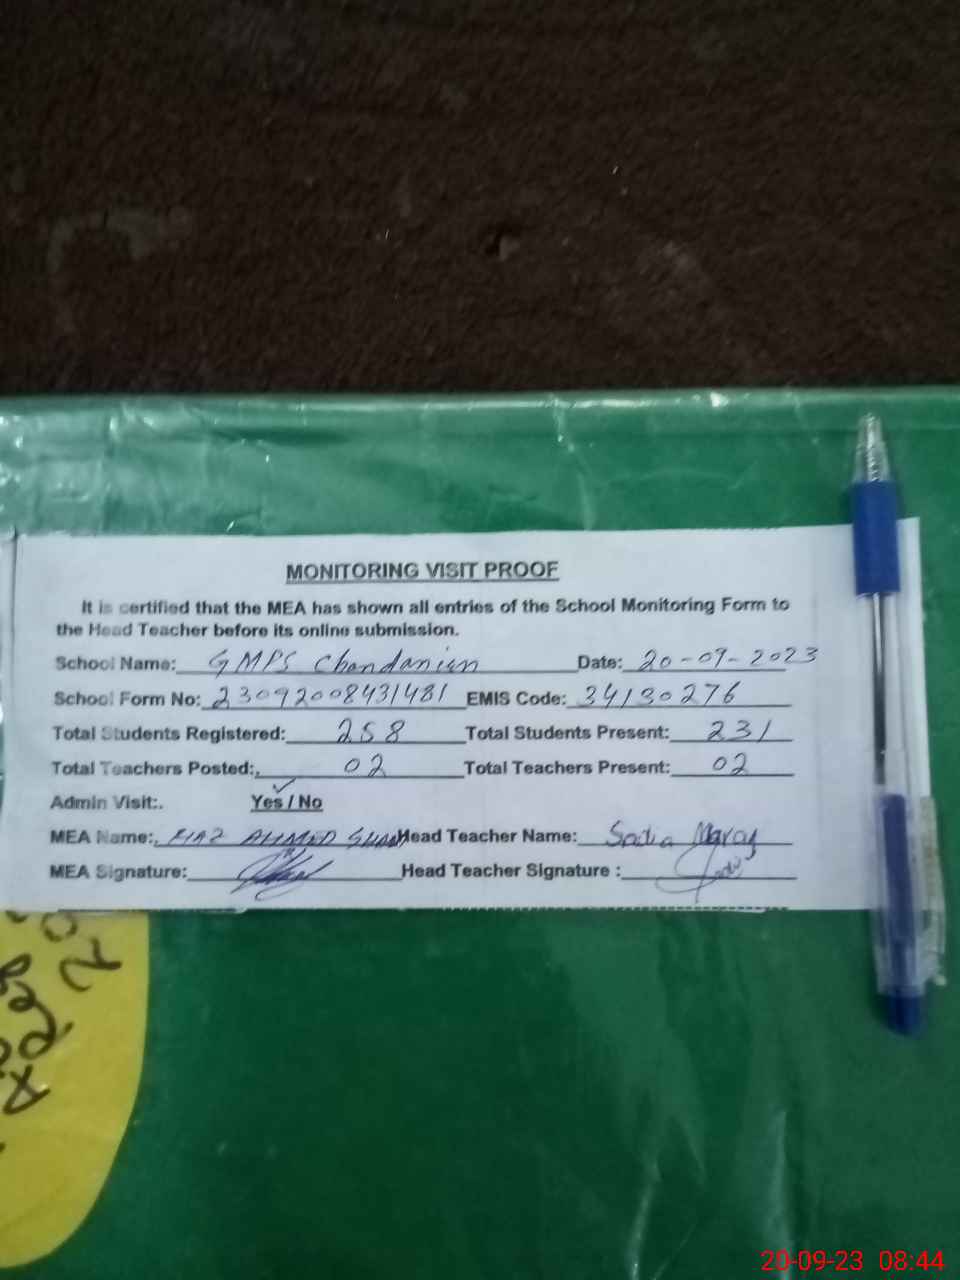 MONITORING VISIT PROOF
It is certified that the MEA has shown all entries of the School Monitoring Form to
the Head Teacher before its online submission.
School Name: GMPS Chandanian Date: 20-09-2023
School Form No: 23092008431481 EMIS Code: 34130276
Total Students Registered: 258 Total Students Present: 231
Total Teachers Posted:. 02 Total Teachers Present: 02
Admin Visit:. Yes / No
MEA Name:. RIAZ AHMED Head Teacher Name: Sadia
MEA Signature: Head Teacher Signature :
20-09-23 08:44